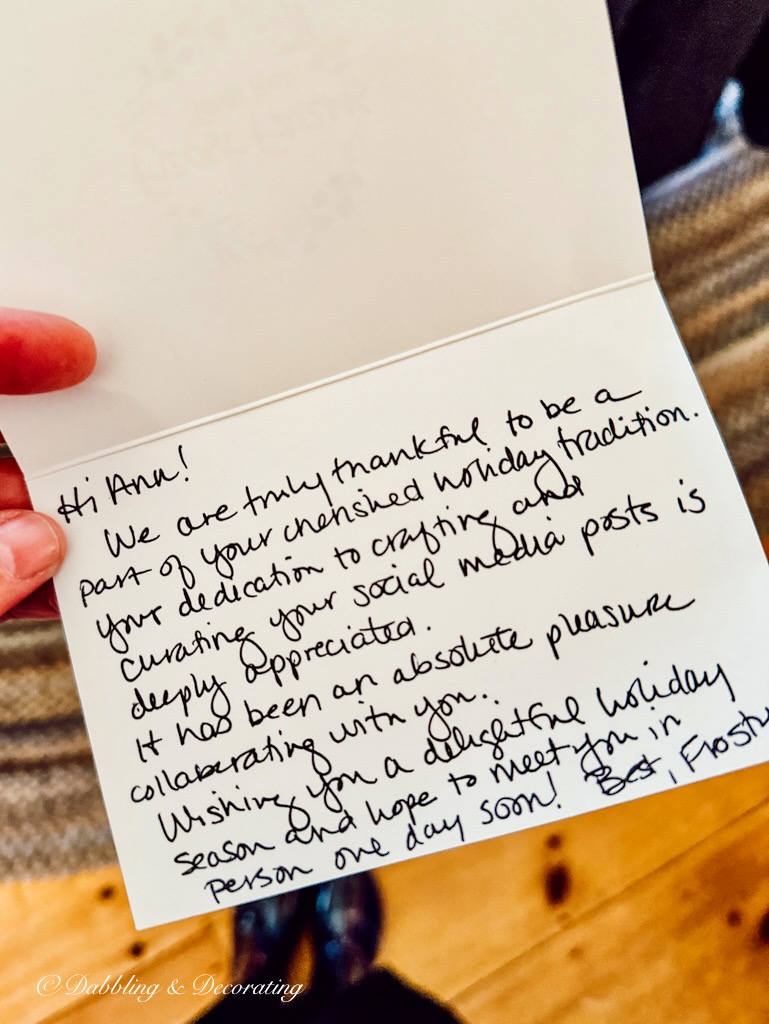 Hi Ann!
We are truly thankful to be a
part of your cherished holiday tradition.
your dedication to crafting and
curating your social media posts is
deeply appreciated.
It has been an absolute pleasure
collaborating with you.
Wishing you a delightful holiday
season and hope to meet you in
person one day soon! Best, Frosty
© Dabbling & Decorating